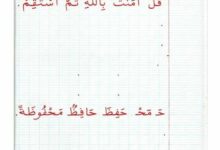 قُلْ آمَنْتُ بِاللَّهِ ثُمَّ اسْتَقِمْ.
حَـ مَحْـ حَفِظَ حَافِظٌ مَحْفُوظَةٌ.